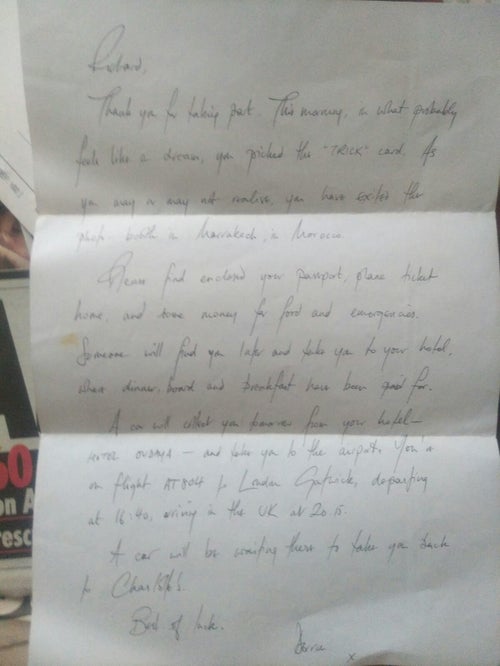 Richard,
Thank you for taking part. This morning, in what probably
feels like a dream, you picked the "TRICK" card. As
you may or may not realise, you have exited the
photo-booth in Marrakech, in Morocco.
Please find enclosed your passport, plane ticket
home, and some money for food and emergencies.
Someone will find you later and take you to your hotel,
where dinner, board and breakfast have been paid for.
A car will collect you tomorrow from your hotel -
HOTEL OUDAYA - and take you to the airport. You're
on flight AT804 to London Gatwick, departing
at 16:40, arriving in the UK at 20.15.
A car will be waiting there to take you back
to Charlotte's.
Best of luck.
Derren x
50
on A
resc